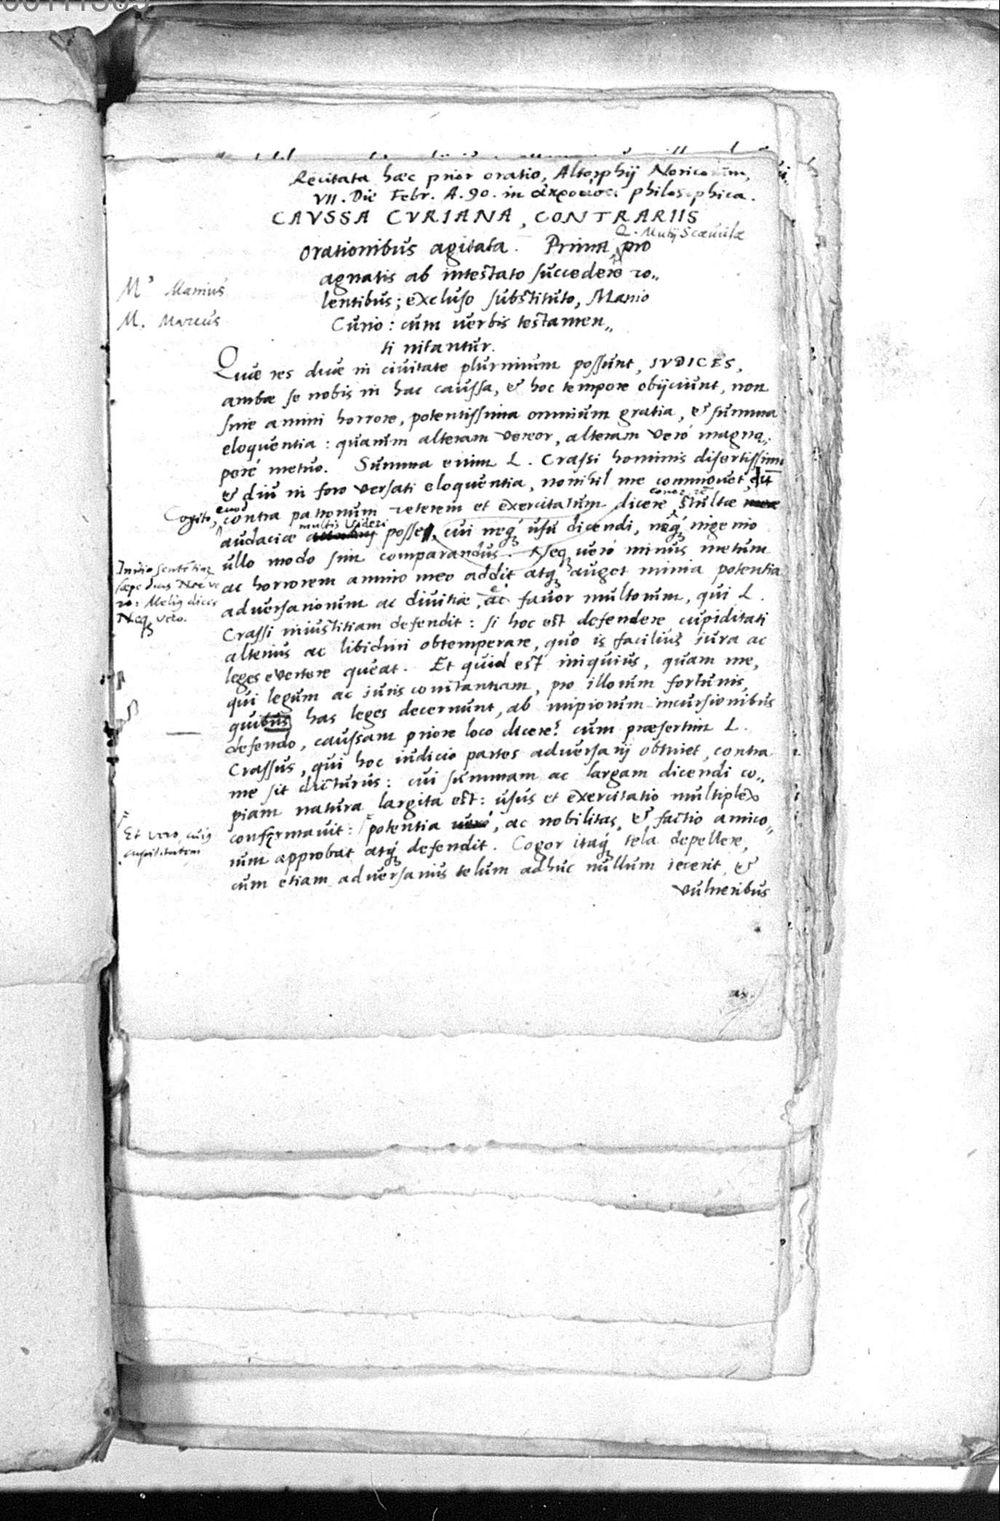 Recitata hæc prior oratio, Altorphij Noricorum,
VII. Die Febr. A. 90. in philosophica.
CAVSSA CVRIANA, CONTRARIIS
Q. Mutij Scævolæ
orationibus agitata. Prima pro
agnatis ab intestato succedere vo„
lentibus; excluso substituto, Manio
Curio: cum verbis testamen„
ti nitantur.
M' Manius
M. Marcus
Quæ res duæ in civitate plurimum possunt, IVDICES,
ambæ se nobis in hac caussa, & hoc tempore obijciunt, non
sine animi horrore, potentissima omnium gratia, & summa
eloquentia: quarum alteram vereor, alteram verò magno„
perè metuo. Summa enim L. Crassi hominis disertissimi
& diu in foro versati eloquentia, non nihil me commovet, dum
Cogito, contra patronum veterem et exercitatum dicere stultæ
multis videri
audaciæ posse, cui neq; usu dicendi, neq; ingenio
ullo modo sim comparandus. Neq; verò minus metum
ac horrorem animo meo addit atq; auget nimia potentia
adversariorum ac divitiæ, ac favor multorum, qui L.
Crassi iniustitiam defendit: si hoc est defendere cupiditati
alterius ac libidini obtemperare, quo is facilius iura ac
leges evertere queat. Et quid est iniquius, quam me,
qui legum ac iuris constantiam, pro illorum fortunis,
quibus has leges decernunt, ab impiorum incursionibus
defendo, caussam priore loco dicere? cum præsertim L.
Crassus, qui hoc iudicio partes adversarij obtinet, contra
me sit dicturus: cui summam ac largam dicendi co„
piam natura largita est: usus et exercitatio multiplex
confirmavit: potentia, ac nobilitas, & factio amico„
rum approbat atq; defendit. Cogor itaq; tela depellere,
cum etiam adversarius telum adhuc nullum iecerit, &
vulneribus
Initio sententiæ
sæpe dicis Neq; ve
ro: Meliq dices
Neq; vero.
Et vero, cuiq